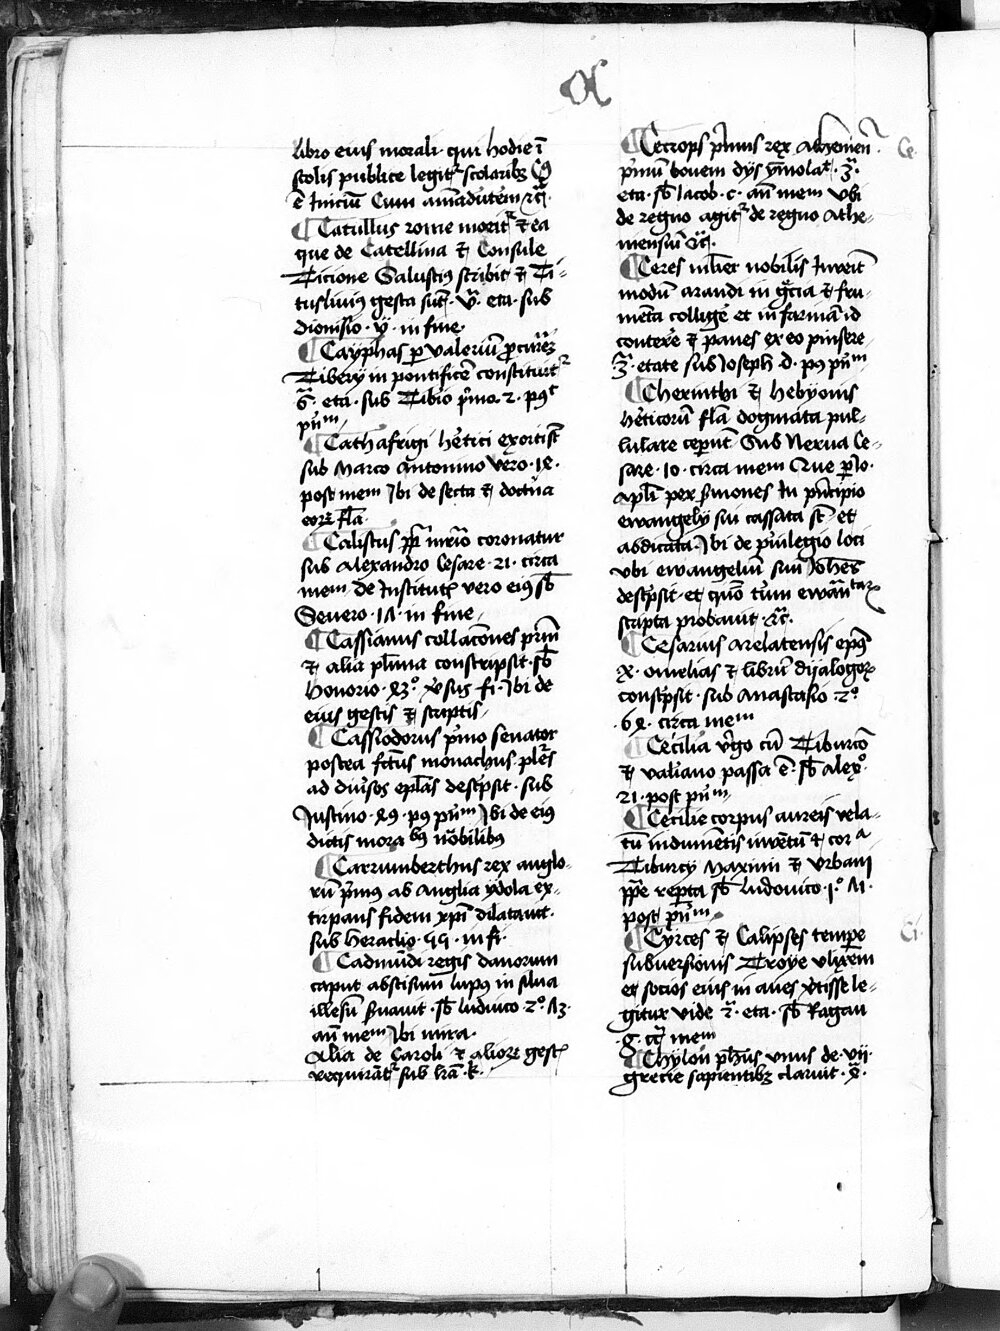 libro eius morali· qui hodie ī
scolis publice legitᷣ scolaribꝫ
ē Iniciū Cum amāduteꝫ
¶ Catullus rome moritᷣ ⁊ ea
que de Catellina ⁊ Consule
Ticione Salustiꝰ scribit ⁊ Ti-
tusliuiꝰ gesta sūt· v̄· eta· sub
dionisio· ÿ· in fine·
¶ Cayphas ꝑ valeriū
Tiberÿ in pontificē constituitᷣ
6̄· eta· sub Tiberio pͥmo· 2· pꝯᵗ
pūᵐ·
¶ Cathafrigi hētici exorti st̄
sub Marco Antonino vero· 18·
post mem Ibi de secta ⁊ doctͥna
eorꝝ
¶ Calistus pp̄ coronatur
sub Alexandro Cesare· 21· circa
mem de Institutꝭ vero eiꝰ sb̄
Seuero· 18· in fine·
¶ Cassianus collacōnes pr̄m
⁊ alia pl̄ima conscripsit· sb̄
honorio· v̄sus fi· Ibi de
eius gestis ⁊ scriptis·
¶ Cassiodorus pͥmo senator
postea fct̄us monachus· pl̄es
ad diu̾sos ep̄las desc̾psit· sub
Iustino· 89· pꝯ pūᵐ Ibi de eiꝰ
dictis mora bꝰ nōbilibꝰ
¶ Carrumberthus rex anglo-
rū pͥmꝰ ab Anglia ydola ex-
tirpans fidem xpī dilatauit·
sub heraclio· 55· in fi·
¶ Cadmūdi regis danorum
caput abscisum lupꝰ in silua
illesū s̾uauit· sb̄ ludouico· 2°·
an̄ meᵐ Ibi mira·
Alia de Caroli ⁊ aliorꝝ gestꝭ
requirātᷣ sub lrā· k·
¶ Cecrops pͥmus rex Athenien̄·
pͥmū bouem dÿs ÿmolat· 3̄·
eta· sb̄ Iacob· c· an̄ mem vbi
de regno agitᷣ de regno Athe-
niensiū ⁊c̄·
¶ Ceres mulier nobilis Inuenit
modū arandi in grecia ⁊ fru-
menta collige̾ et in farinā id
contere̾ ⁊ panes ex eo pinsere·
3̄· etate sub Ioseph· d· pꝯ pūᵐ
¶ Cherinthi ⁊ Hebyonis
hēticorū flā dogmata pul-
lulare cep̾unt· Sub Nerua Ce-
sare· 10· circa mem Que ꝑ Io·
apl̄i ꝑ sermones In pͥncipio
ewangelÿ sui cassata st̄ et
abdicata· Ibi de pͥuilegio loci
vbi ewangeliū suū Iohēs
desc̾psit· et quō t̾um ewān̄
scripta probauit· ⁊c̄·
¶ Cesarius arelatensis ep̄ꝰ
x· omelias ⁊ librū dÿalogorꝝ
const̾psit· sub Anastasio· 2°
·68· circa meᵐ
¶ Cecilia v̾go cū Tiburcō
⁊ valiano passa ē· sb̄ Alex°·
21· post pūᵐ·
¶ Cecilie corpus aureis vela-
tū indumētis inuētū ⁊ cor a
Tiburcÿ Maximi ⁊ Urbani
pp̄e rep̾ta sb̄ Ludouico· 1°·
post pūᵐ·
¶ Cyrces ⁊ Calipses tempe
subuersionis Troye vlixem
et socios eius in aues v̾tisse le-
gitur vide 2̄· eta· sb̄ Ragau
·g· mem
¶ Chylon ph̄us vnus de· vii·
grecie sapientibꝫ claruit· v̄·
Ce·
Ci·